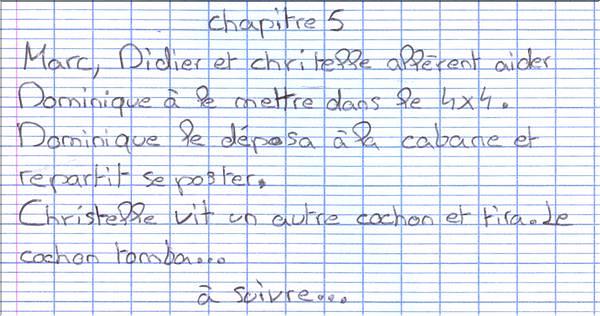 chapitre 5
Marc, Didier et christelle allèrent aider
Dominique à le mettre dans le 4x4.
Dominique le déposa à la cabane et
repartit se poster.
Christelle vit un autre cochon et tira. Le
cochon tomba...
à suivre...